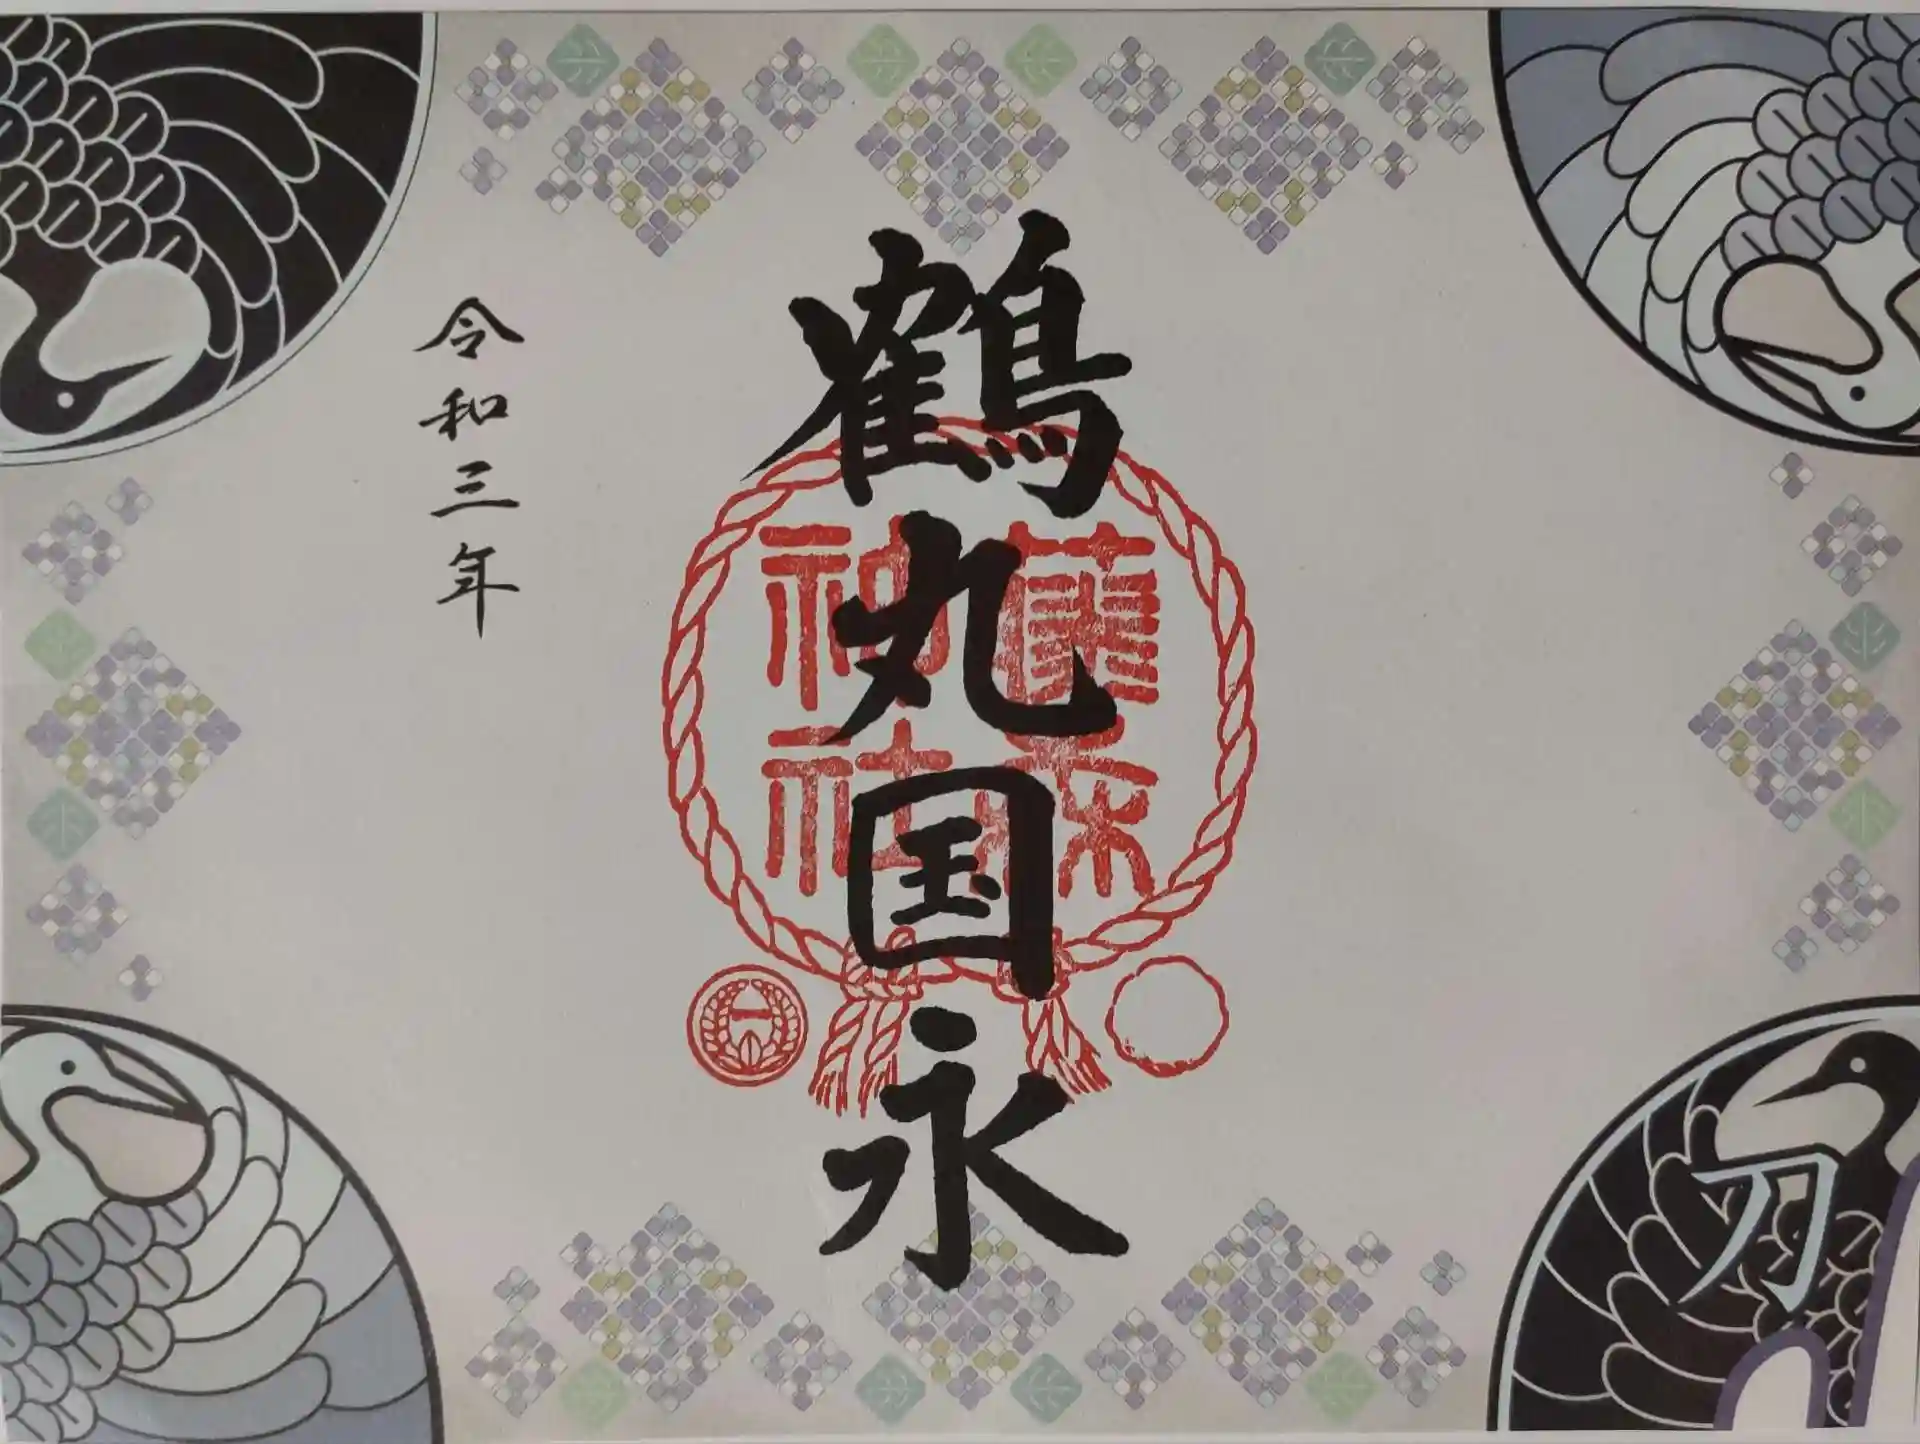 鶴丸国永
藤森
神社
令和三年
一
刀